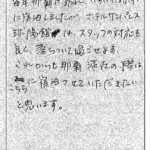 に宿泊しましたが、ホテルサンパレス
球陽館は、スタッフの対応も
良く、落ちついて過ごせます。
これからも那覇滞在の際は
こちらに宿泊させていただきたい
と思います。